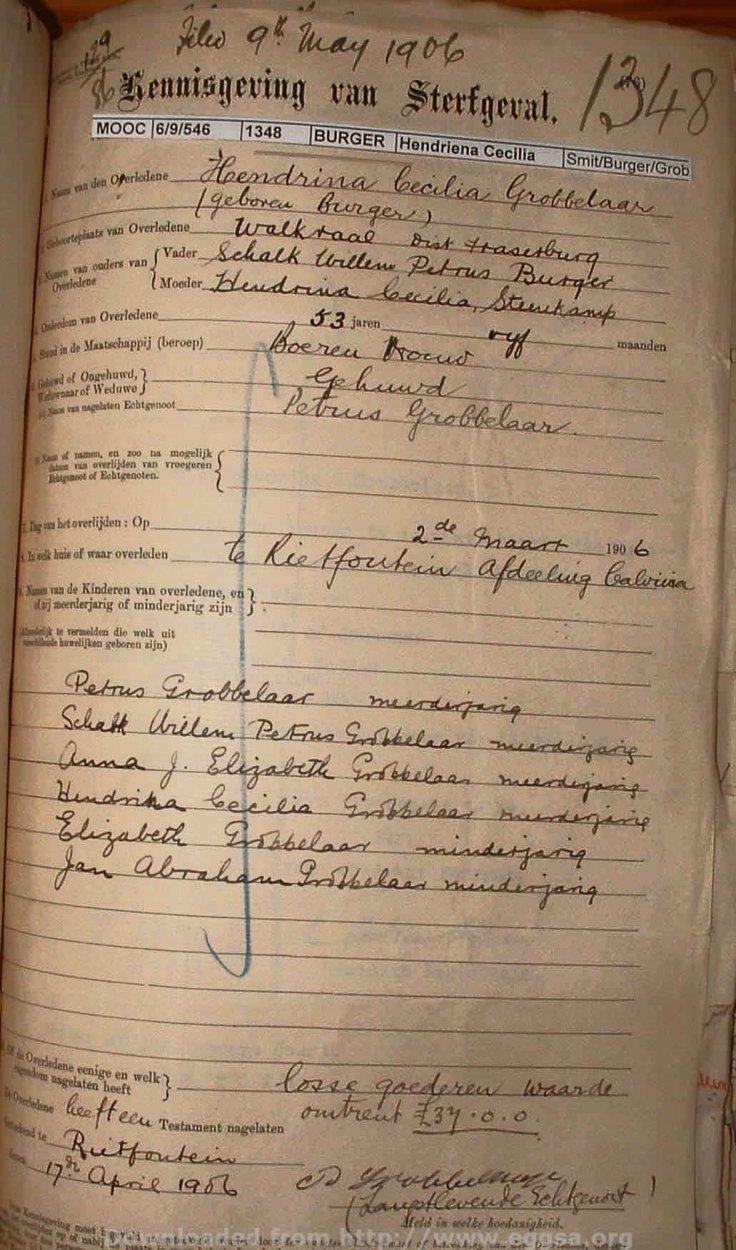 Filed 9th May 1906
29
1348
Kennisgeving van Sterfgeval.
MOOC 6/9/546 1348 BURGER Hendriena Cecilia Smit/Burger/Grob
1. Naam van den Overledene Hendrina Cecilia Grobbelaar
(geboren Burger)
2. Geboorteplaats van Overledene Walkraal Dist Fraserburg
3. Namen van ouders van Overledene { Vader Schalk Willem Petrus Burger
Moeder Hendrina Cecilia Steenkamp
4. Ouderdom van Overledene 53 jaren vyf maanden
5. Stand in de Maatschappij (beroep) Boeren Vrouw
6. Gehuwd of Ongehuwd, Weduwnaar of Weduwe } Gehuwd
(a) Naam van nagelaten Echtgenoot Petrus Grobbelaar.
(b) Naam of namen, en zoo na mogelijk
datum van overlijden van vroegeren
Echtgenoot of Echtgenoten.
7. Dag van het overlijden: Op 2de Maart 1906
8. In welk huis of waar overleden te Rietfontein Afdeeling Calvinia
9. Namen van de Kinderen van overledene, en
of zij meerderjarig of minderjarig zijn
(Afzonderlijk te vermelden die welk uit
verschillende huwelijken geboren zijn)
Petrus Grobbelaar meerderjarig
Schalk Willem Petrus Grobbelaar meerderjarig
Anna J. Elizabeth Grobbelaar meerderjarig
Hendrika Cecilia Grobbelaar meerderjarig
Elizabeth Grobbelaar minderjarig
Jan Abraham Grobbelaar minderjarig
Of de Overledene eenige en welk
eigendom nagelaten heeft } losse goederen waarde
omtrent £37.0.0.
De Overledene heeft een Testament nagelaten
Geteekend te Rietfontein
17de April 1906
Grobbelaar
(Langstlevende Echtgenoot)
Meld in welke hoedanigheid.
Downloaded from http://www.eggsa.org